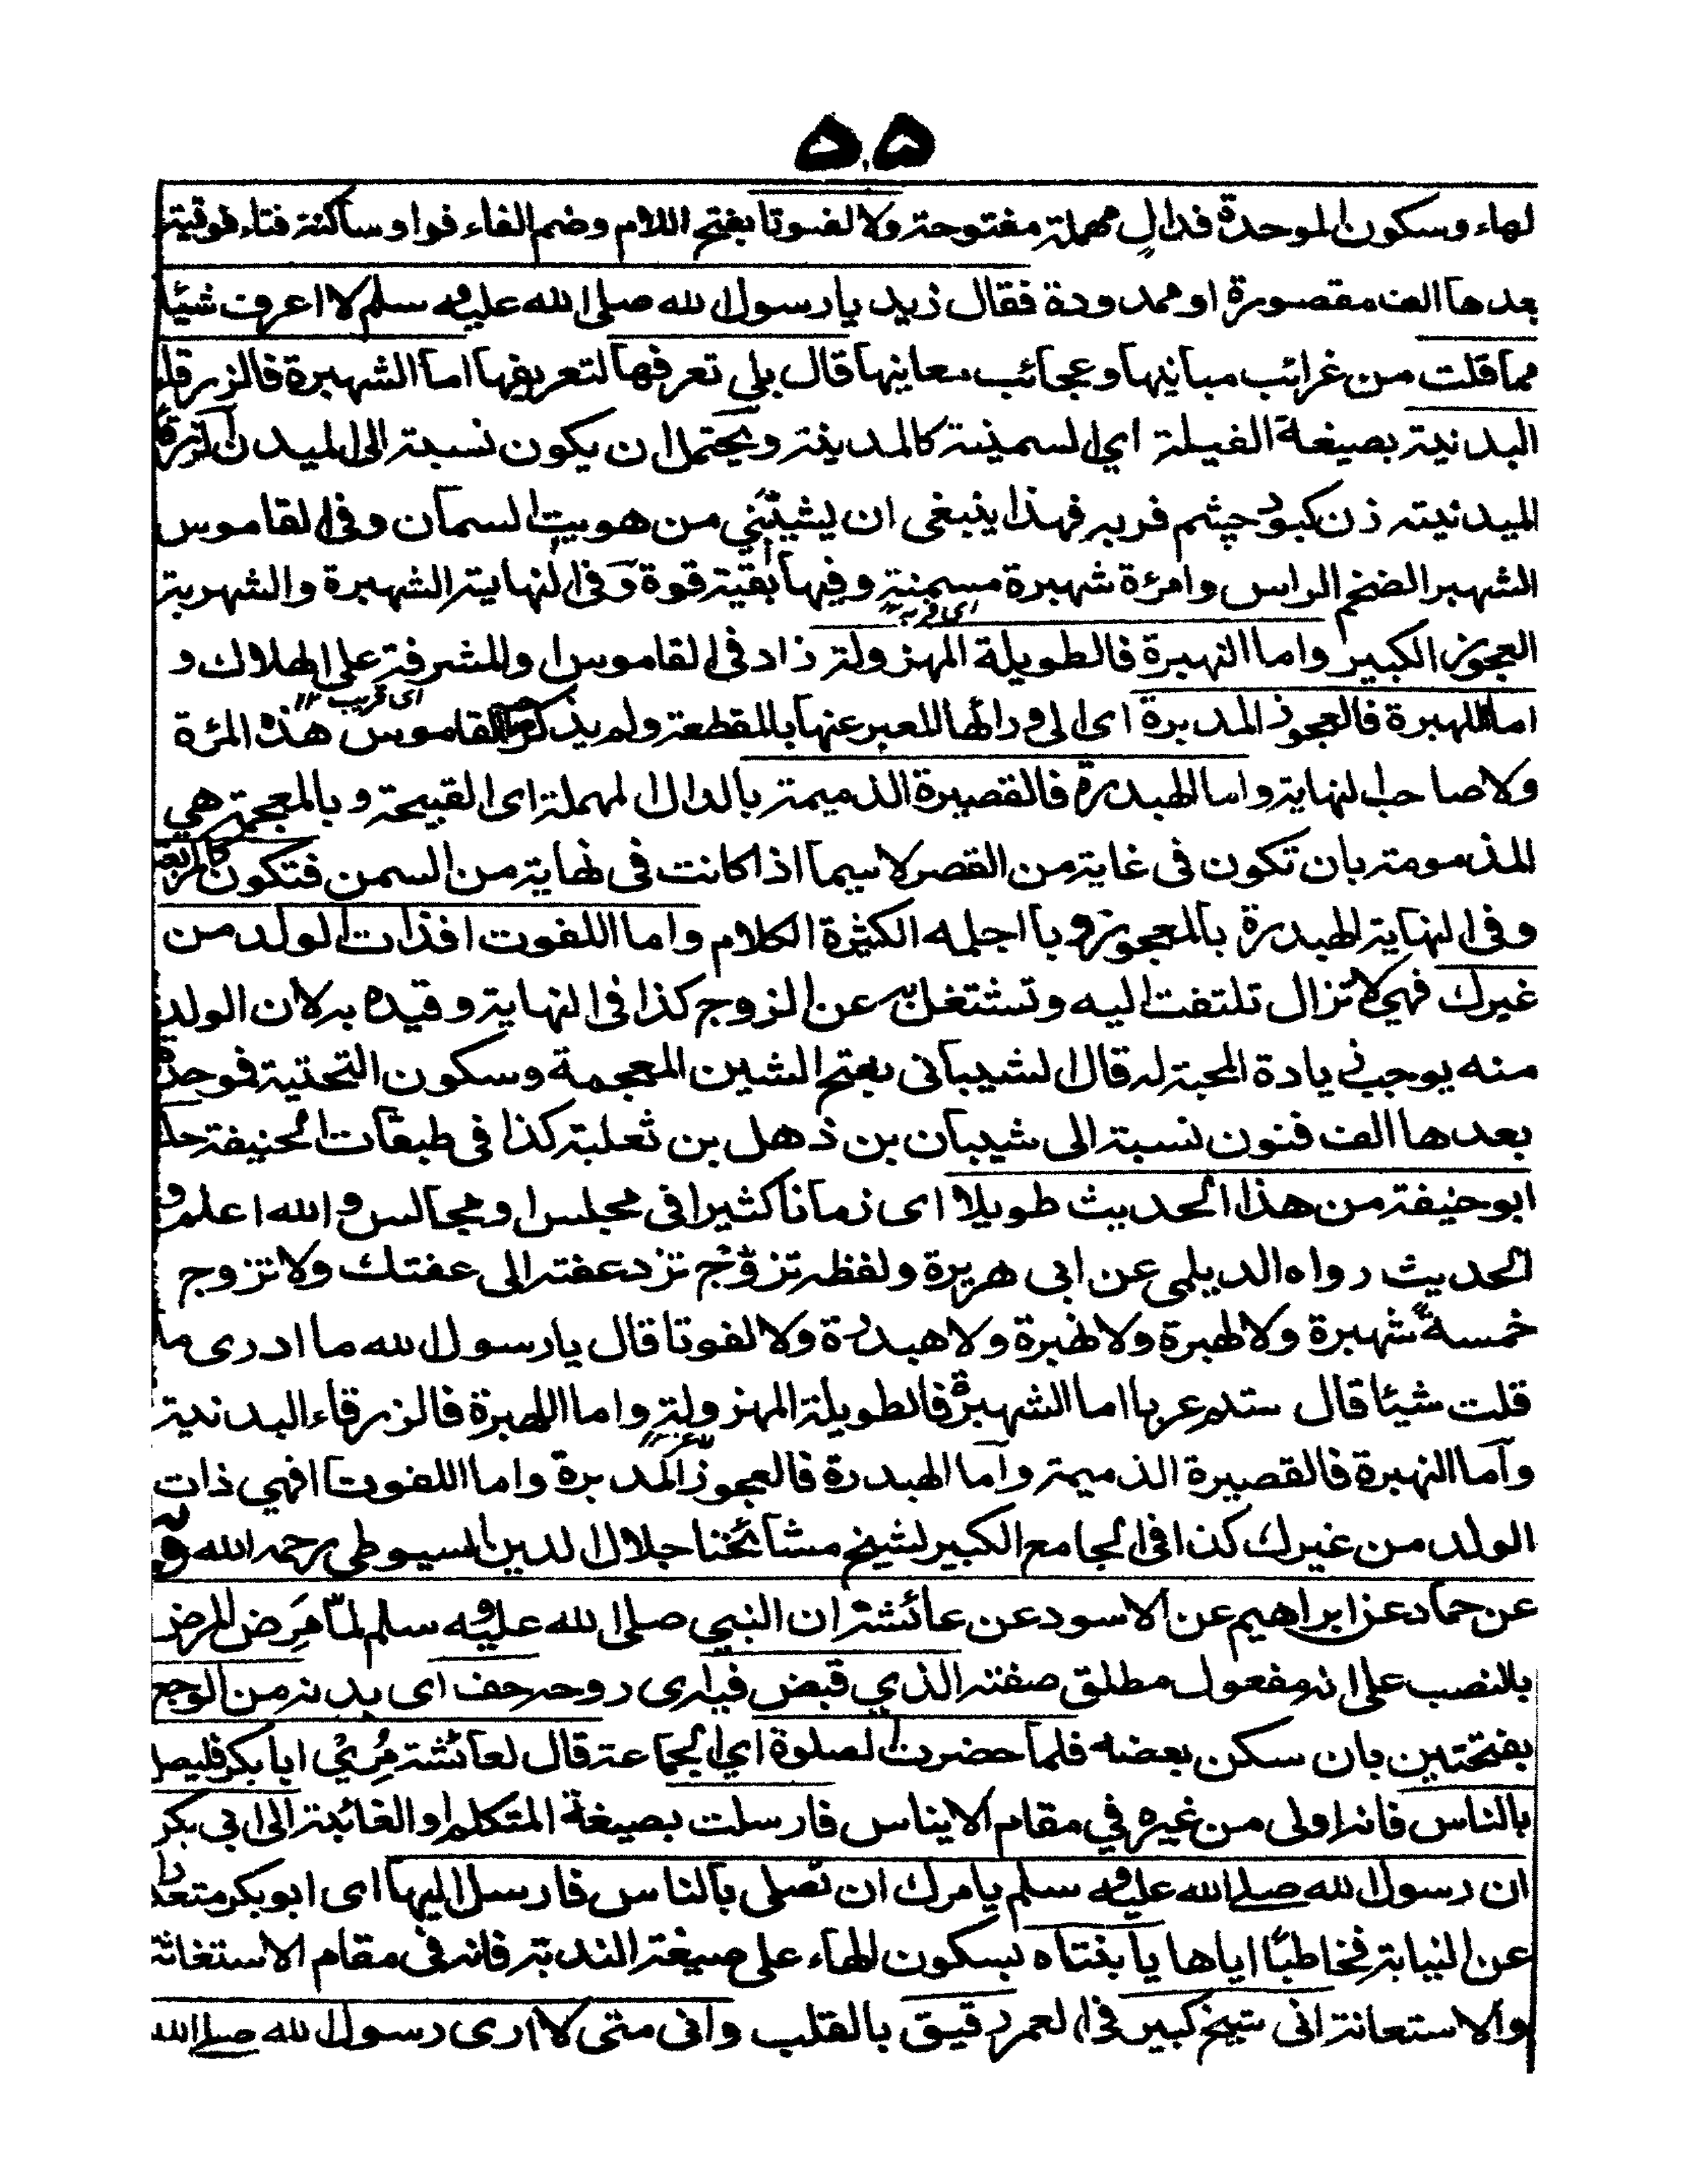 ۵۵
لهاء وسكون الموحدة فدال مهملة مفتوحة ولا لفوتا بفتح اللام وضم الفاء فواو ساكنة فتاء فوقية
بعدها الف مقصورة او ممدودة فقال زيد يا رسول الله صلى الله عليه وسلم لا اعرف شيئا
مما قلت من غرائب مبانيها وعجائب معانيها قال بلى تعرفها لتعريفها اما الشهبرة فالزرقاء
البدنية بصيغة الفيلة اي السمينة كالمدينة ويحتمل ان يكون نسبة الى الميدن
الميدنيته زن كبود چشم فربه فهذا ينبغى ان يشيبني من هوبيت السمان وفى القاموس
الشهبر الضخم الراس وامرءة شهبرة مسمنة وفيها بقية قوة وفى النهاية الشهبرة والشهربة
اى فربه ۱۲
العجوز الكبير واما النهبرة فالطويلة المهزولة زاد فى القاموس او المشرفة على الهلاك و
اى قريب ۱۲
اما اللهبرة فالعجوز المدبرة اى الى ورائها المعبر عنها بالمقطعة ولم يذكر القاموس هذه المرءة
ولا صاحب النهاية واما الهبدرة فالقصيرة الذميمة بالدال المهملة اى القبيحة وبالمعجمة هي
المذمومة بان تكون فى غاية من القصر لا سيما اذا كانت فى نهاية من السمن فتكون كالمربعة
وفى النهاية الهبدرة بالمعجوز وبا اجله الكثيرة الكلام واما اللفوت افذات الولد من
غيرك فهي لا تزال تلتفت اليه وتشتغل به عن الزوج كذا فى النهاية وقيده به لان الولد
منه يوجب زيادة المحبة له قال الشيبانى بفتح الشين المعجمة وسكون التحتية فوحدة
بعدها الف فنون نسبة الى شيبان بن ذهل بن ثعلبة كذا فى طبقات الحنيفة
ابو حنيفة من هذا الحديث طويلا اى زمانا كثيرا فى مجلس او مجالس والله اعلم و
الحديث رواه الديلمى عن ابى هريرة ولفظه تزوج تزد عفتة الى عفتك ولا تزوج
خمسة شهبرة ولا لهبرة ولا نهبرة ولا هبدرة ولا لفوتا قال يا رسول الله ما ادرى ما
قلت شيئا قال ستم عربا اما الشهبرة فالطويلة المهزولة واما اللهبرة فالزرقاء البدنية
واما النهبرة فالقصيرة الذميمة واما الهبدرة فالعجوز المدبرة واما اللفوت افهي ذات
الولد من غيرك كذا فى الجامع الكبير لشيخ مشائخنا جلال الدين السيوطى رحمه الله وبه
عن حماد عن ابراهيم عن الاسود عن عائشة ان النبي صلى الله عليه وسلم لما مرض المرض
بالنصب على انه مفعول مطلق صفته الذي قبض فيه اى روحه خف اى بدنه من الوجع
بفتحتين بان سكن بعضه فلما حضرت الصلوة اي الجماعة قال لعائشة مري ابا بكر فليصل
بالناس فانه اولى من غيره في مقام الايناس فارسلت بصيغة المتكلم او الغائبة الى ابي بكر
ان رسول الله صلى الله عليه وسلم يامرك ان تصلى بالناس فارسل اليها اى ابو بكر متعذرا
عن النيابة مخاطبا اياها يا بنتاه بسكون الهاء على صيغة الندبة فانه فى مقام الاستغاثة
والاستعانة انى شيخ كبير فى العمر رقيق بالقلب وانى متى لا ارى رسول الله صلى الله